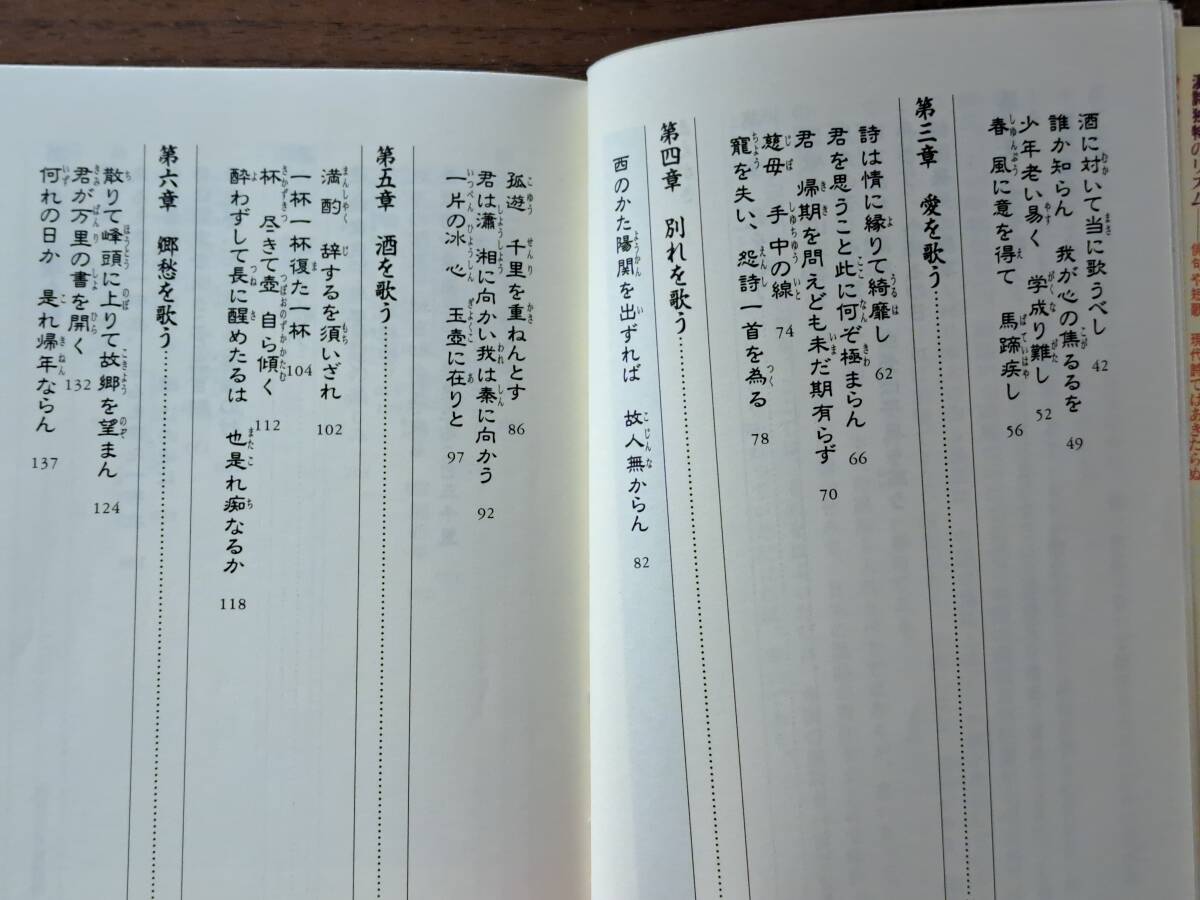 酒に対いて当に歌うべし 42
誰か知らん 我が心の焦るるを 49
少年老い易く 学成り難し 52
春風に意を得て 馬蹄疾し 56
第三章 愛を歌う
詩は情に縁りて綺靡し 62
君を思うこと此に何ぞ極まらん 66
君 帰期を問えども未だ期有らず 70
慈母 手中の線 74
寵を失い、怨詩一首を為る 78
第四章 別れを歌う
西のかた陽関を出ずれば 故人無からん 82
孤遊 千里を重ねんとす 86
君は瀟湘に向かい我は秦に向かう 92
一片の冰心 玉壺に在りと 97
第五章 酒を歌う
満酌 辞するを須いざれ 102
一杯一杯復た一杯 104
杯 尽きて壺 自ら傾く 112
酔わずして長に醒めたるは 也是れ痴なるか 118
第六章 郷愁を歌う
散りて峰頭に上りて故郷を望まん 124
君が万里の書を開く 132
何れの日か 是れ帰年ならん 137